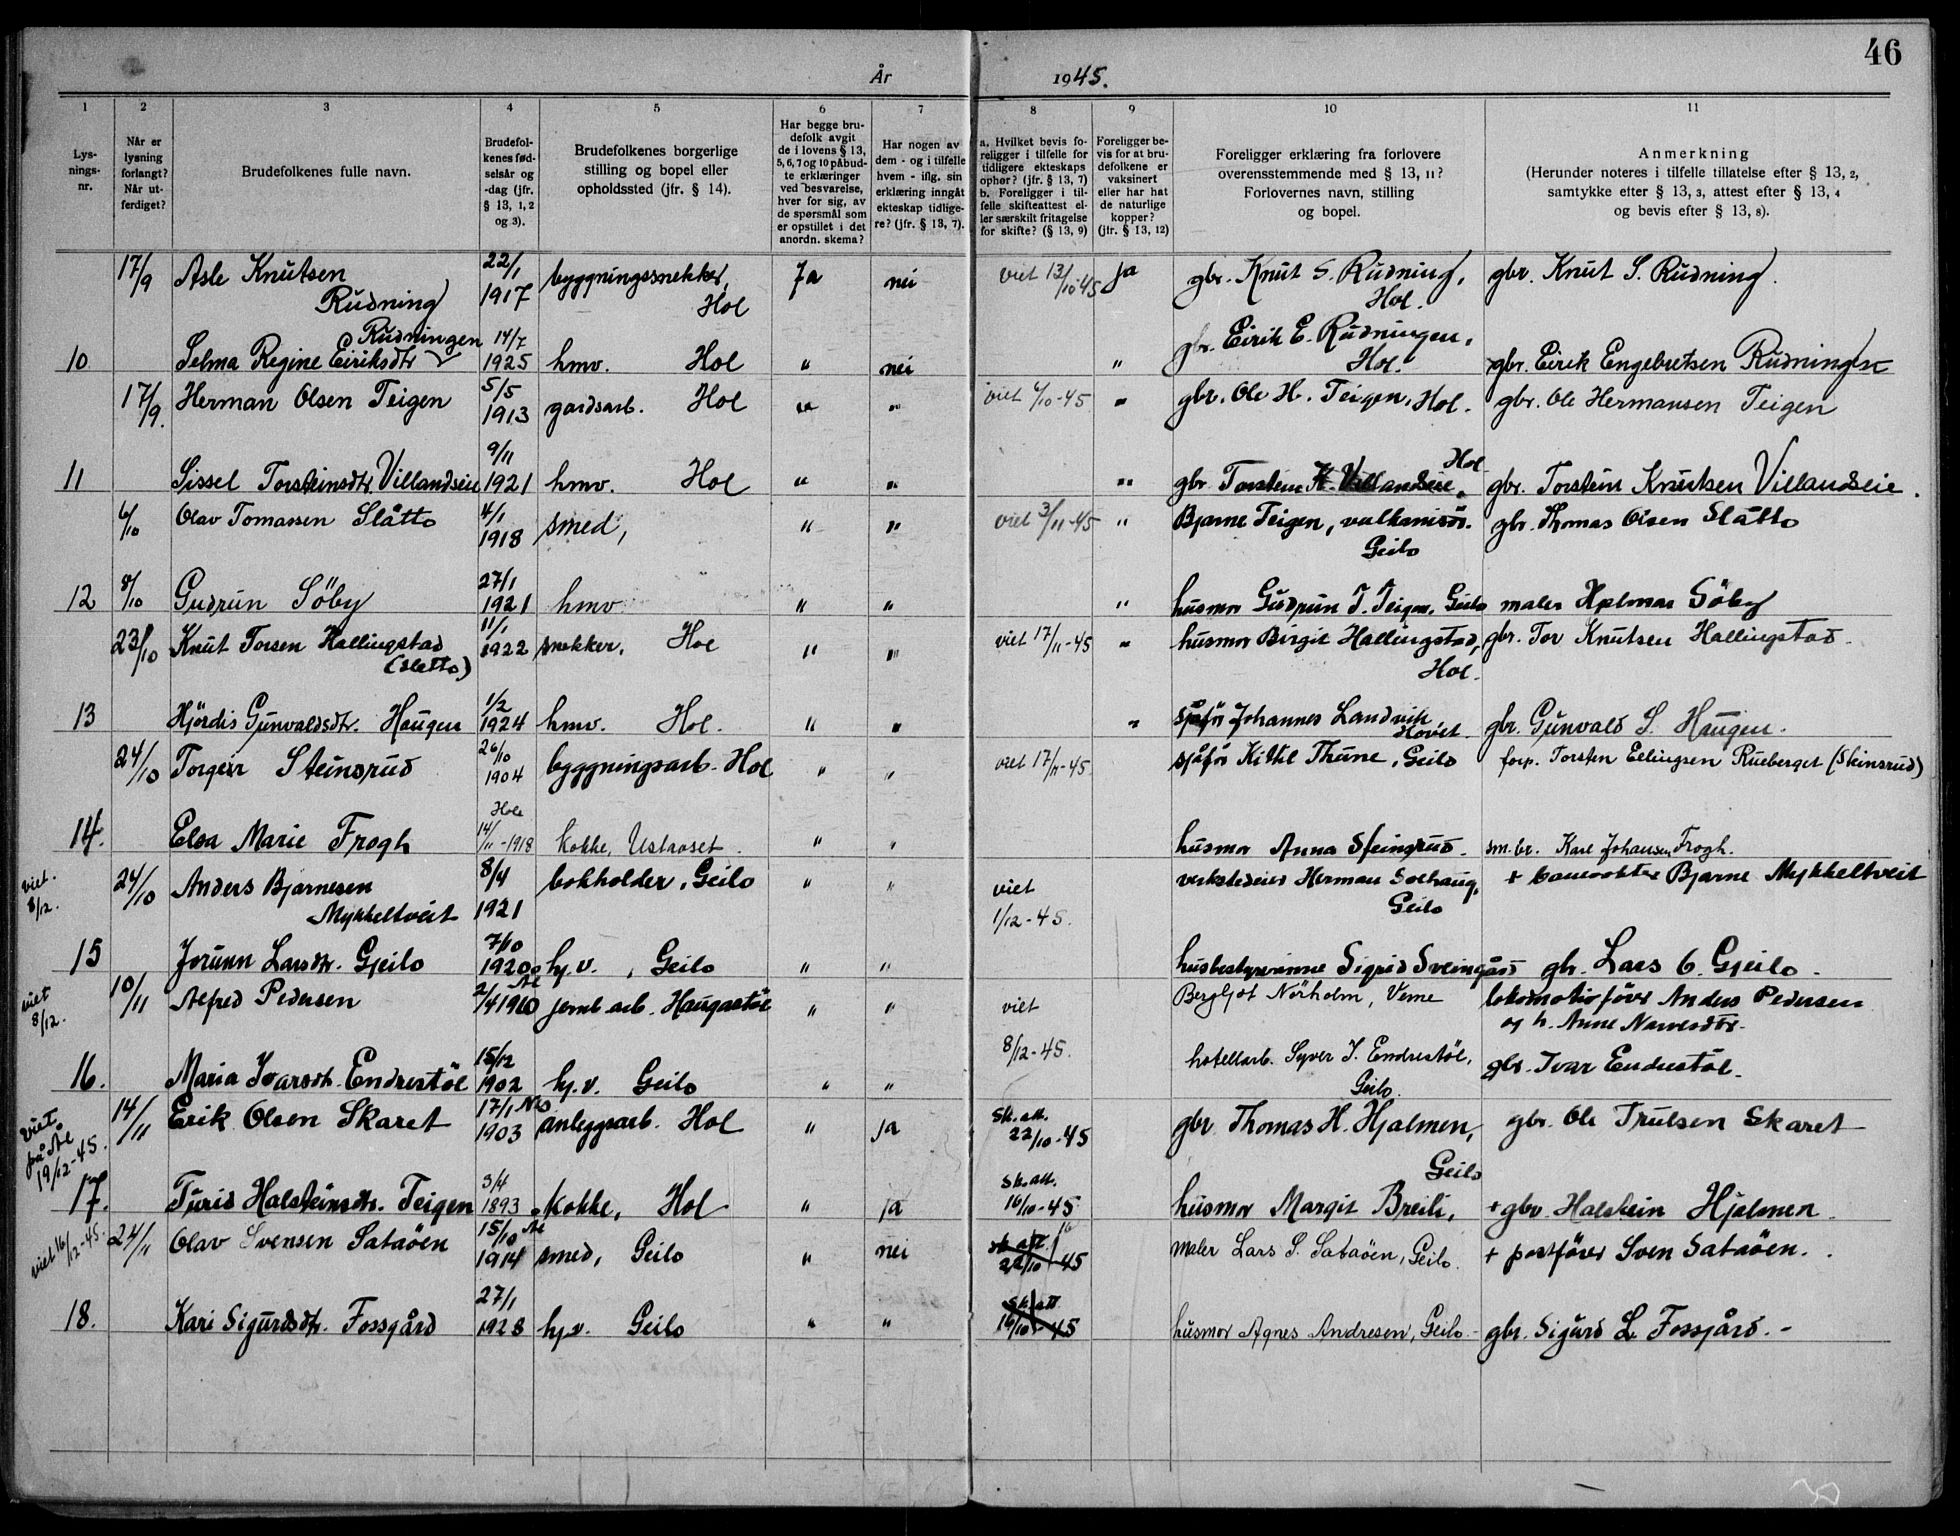 46
År 1945.
1 2 3 4 5 6 7 8 9 10 11
Lys-
nings-
nr.
Når er
lysning
forlangt?
Når ut-
ferdiget?
Brudefolkenes fulle navn.
Brudefol-
kenes fød-
selsår og
-dag (jfr.
§ 13, 1, 2
og 3).
Brudefolkenes borgerlige
stilling og bopel eller
opholdssted (jfr. § 14).
Har begge bru-
defolk avgit
de i lovens § 13,
5, 6, 7 og 10 påbud-
te erklæringer
ved besvarelse,
hver for sig, av
de spørsmål som
er opstillet i det
anordn. skema?
Har nogen av
dem - og i tilfelle
hvem - iflg. sin
erklæring inngått
ekteskap tidlige-
re? (jfr. § 13, 7).
a. Hvilket bevis fo-
religger i tilfelle for
tidligere ekteskaps
ophør? (jfr. § 13, 7)
b. Foreligger i til-
felle skifteattest el-
ler særskilt fritagelse
for skifte? (§ 13, 9)
Foreligger be-
vis for at bru-
defolkene er
vaksinert
eller har hat
de naturlige
kopper?
(jfr. § 13, 12)
Foreligger erklæring fra forlovere
overensstemmende med § 13, 11?
Forlovernes navn, stilling
og bopel.
Anmerkning
(Herunder noteres i tilfelle tillatelse efter § 13, 2,
samtykke efter § 13, 3, attest efter § 13, 4
og bevis efter § 13, 8).
17/9 Asle Knutsen Rudning 22/1 1917 byggningssnekker, Hol Ja nei viet 13/10-45 ja gbr. Knut S. Rudning, Hol. gbr. Knut S. Rudning.
10 Selma Regine Eiriksdtr Rudningen 14/7 1925 hmv. Hol " nei " gbr. Eirik E. Rudningen, Hol. gbr. Eirik Engebretsen Rudningen
17/9. Herman Olsen Teigen 5/5 1913 gardsarb. Hol " " viet 6/10-45 " gbr. Ole H. Teigen, Hol. gbr. Ole Hermansen Teigen
11 Sissel Torsteinsdtr. Villandseie 9/11 1921 hmv. Hol " " " gbr Torstein K. Villandseie, Hol gbr. Torstein Knutsen Villandseie.
6/10 Olav Tomassen Slåtto 4/1 1918 smed, " " viet 3/11-45 " Bjarne Teigen, vulkanisør. Geilo gbr. Thomas Olsen Slåtto
12 8/10 Gudrun Söby 27/1 1921 hmv " " " husmor Gudrun T. Teigen, Geilo maler Hjalmar Söby
23/10 Knut Torsen Hallingstad (Sletto) 11/1 1922 snekker, Hol " " viet 17/11-45 " husmor Birgit Hallingstad, Hol. gbr. Tor Knutsen Hallingstad.
13 Hjördis Gunvaldsdtr. Haugen 1/2 1924 hmv. Hol. " " " sjåför Johannes Landvik, Hovet. gbr. Gunvald S. Haugen.
24/10 Torgeir Steinsrud 26/10 1904 byggningsarb. Hol " " viet 17/11-45. sjåför Kittil Thune, Geilo forp. Torsten Ellingsen Rueberget (Steinsrud)
14. Elsa Marie Frogh Hole 14/11-1918 kokke, Ustaoset. " " husmor Anna Steinsrud. sm.br. Karl Johansen Frogh.
viet. 8/12. 24/10 Anders Bjarnesen Mykkeltveit 8/4 1921 bokholder, Geilo " " viet 1/12-45. verkstedeier Herman Solhaug, Geilo + banevokter Bjarne Mykkeltveit
15 Jorunn Larsdtr. Gjeilo 7/10 1920 hj.v., Geilo " " husbestyrerinne Sigrid Sveingård gbr. Lars O. Gjeilo.
viet 8/12. 10/11 Alfred Pedersen 2/4 1910 Ål jernb.arb. Haugastöl " " viet 8/12-45. Bergljot Nörholm, Verne lokomotivförer Anders Pedersen
og h. Anne Narvesdtr.
16. Maria Ivarsdtr. Endrestöl 15/12 1902 hj.v. Geilo " " hotellarb. Syver I. Endrestöl, Geilo. gbr. Ivar Endrestöl.
viet på Ål 19/12-45. 14/11 Erik Olsen Skaret 17/1 1903 anleggsarb. Hol " ja sk.att. 22/10-45 gbr Thomas H. Hjalmen, Geilo gbr. Ole Trulsen Skaret
17. Turid Halsteinsdtr. Teigen 3/4 1893 kokke, Hol " ja sk.att. 16/10-45 husmor Margit Breili, + gbr. Halstein Hjalmen.
viet 16/12-45. 24/11 Olav Svensen Sataöen 15/10 Ål 1914 smed, Geilo " nei sk.att. 22/10-45 maler Lars S. Sataöen, Geilo. + postförer Sven Sataöen.
18. Kari Sigurdsdtr. Fossgård 27/1 1928 hj.v. Geilo " " sk.att 16/10-45 husmor Agnes Andresen, Geilo.- gbr. Sigurd L. Fossgård.-